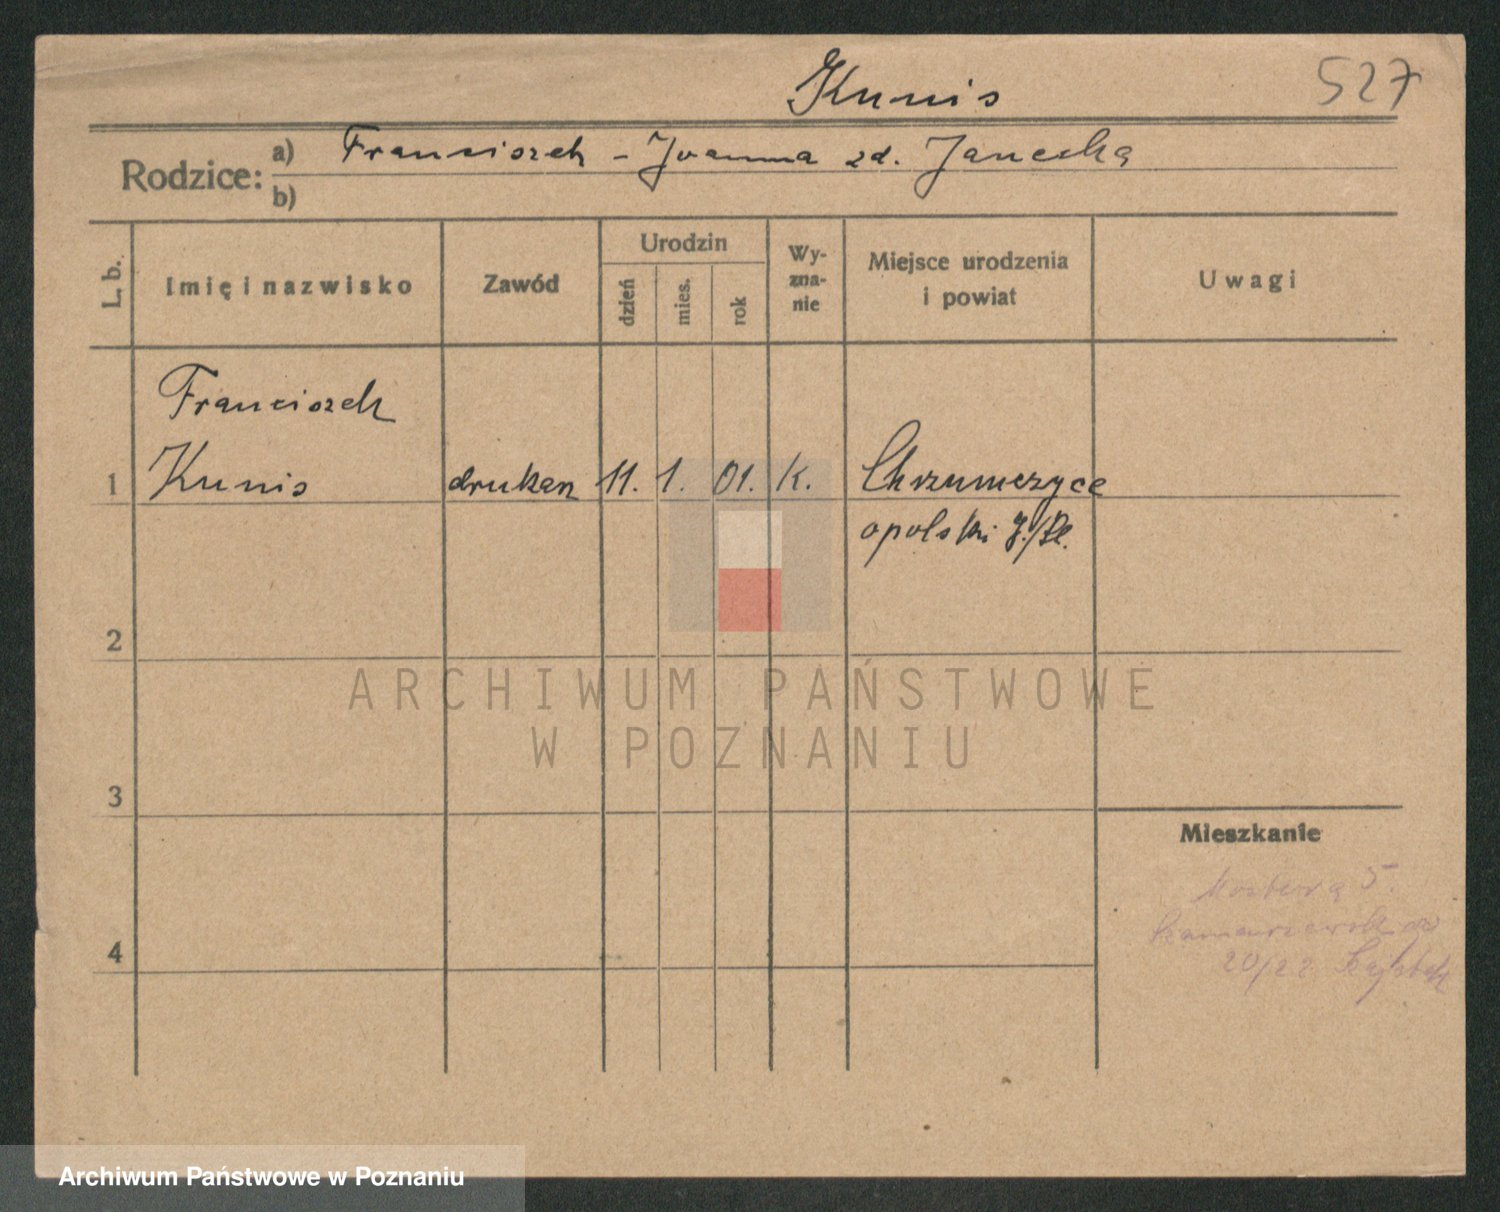 Kunis
527
Rodzice: a) Franciszek - Joanna zd. Janecka
b)
L. b.
Imię i nazwisko
Zawód
Urodzin
dzień
mies.
rok
Wy-
zna-
nie
Miejsce urodzenia
i powiat
Uwagi
Franciszek
1 Kunis drukarz 11. 1. 01. K. Chrzumczyce
opolski
2
ARCHIWUM PAŃSTWOWE
W POZNANIU
3
Mieszkanie
5.
4
20/22
Archiwum Państwowe w Poznaniu